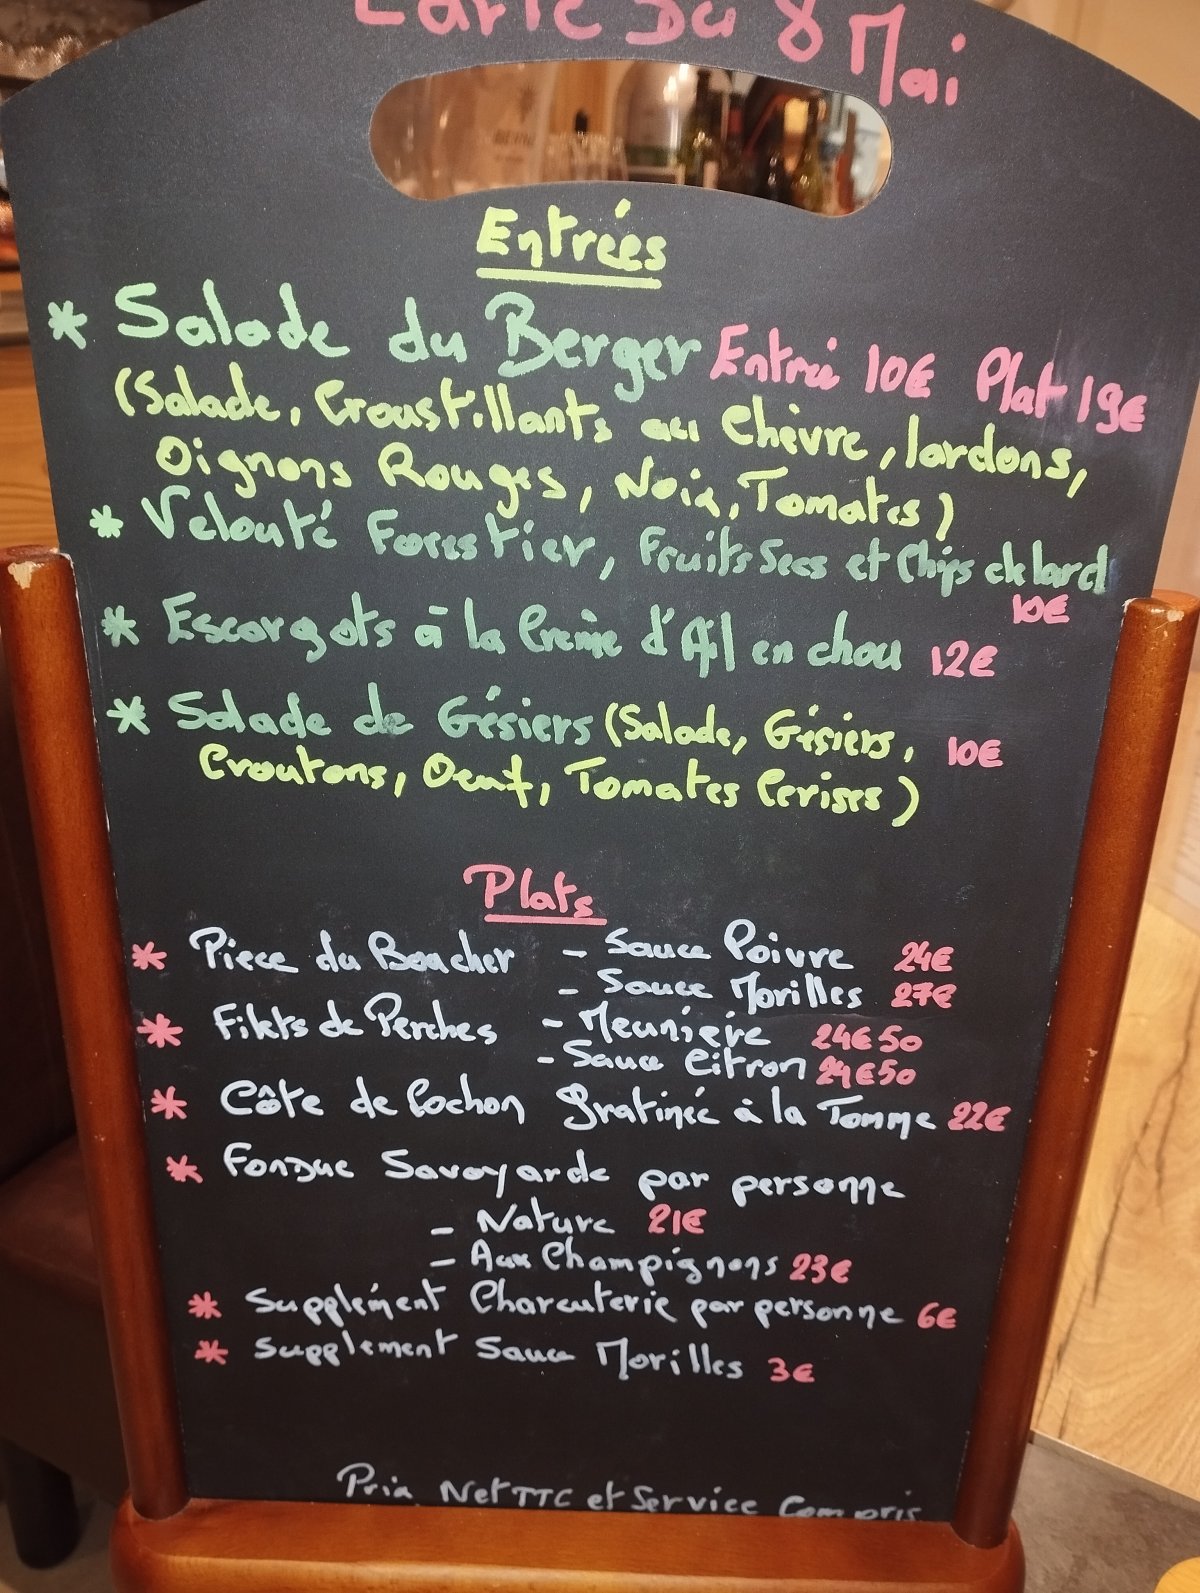 Carte Du 8 Mai
Entrées
* Salade du Berger Entrée 10€ Plat 19€
(Salade, Croustillants au Chèvre, lardons,
Oignons Rouges, Noix, Tomates)
* Velouté Forestier, Fruits Secs et Chips de lard
10€
* Escargots à la Crème d'Ail en chou 12€
* Salade de Gésiers (Salade, Gésiers, 10€
Croutons, Oeuf, Tomates Cerises)
Plats
* Piece du Boucher - Sauce Poivre 24€
- Sauce Morilles 27€
* Filets de Perches - Meunière 24€50
- Sauce Citron 24€50
* Côte de Cochon gratinée à la Tomme 22€
* Fondue Savoyarde par personne
- Nature 21€
- Aux Champignons 23€
* Supplément Charcuterie par personne 6€
* Supplement Sauce Morilles 3€
Prix Net TTC et Service Compris